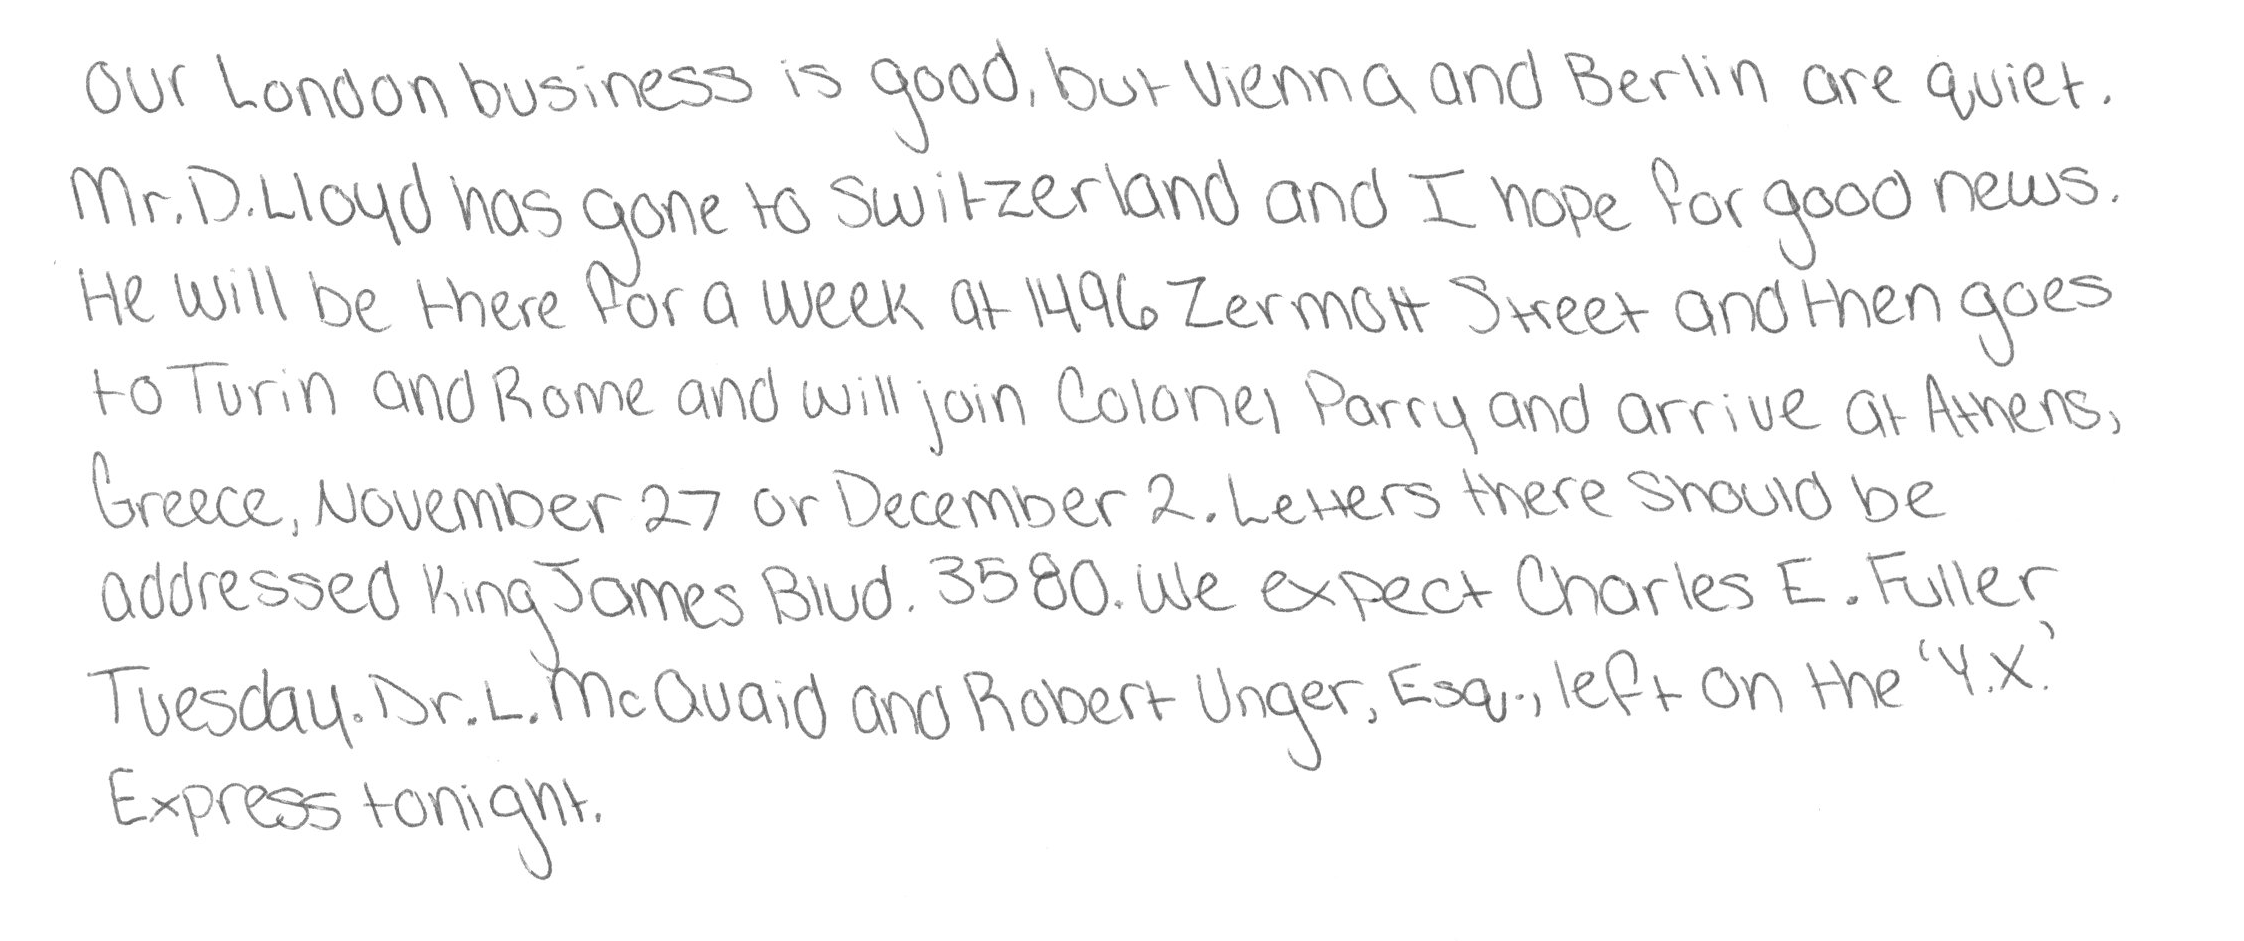 Our London business is good, but Vienna and Berlin are quiet.
Mr. D. Lloyd has gone to Switzerland and I hope for good news.
He will be there for a week at 1496 Zermott Street and then goes
to Turin and Rome and will join Colonel Parry and arrive at Athens,
Greece, November 27 or December 2. Letters there should be
addressed King James Blvd. 3580. We expect Charles E. Fuller
Tuesday. Dr. L. McQuaid and Robert Unger, Esq., left on the 'Y.X.'
Express tonight.